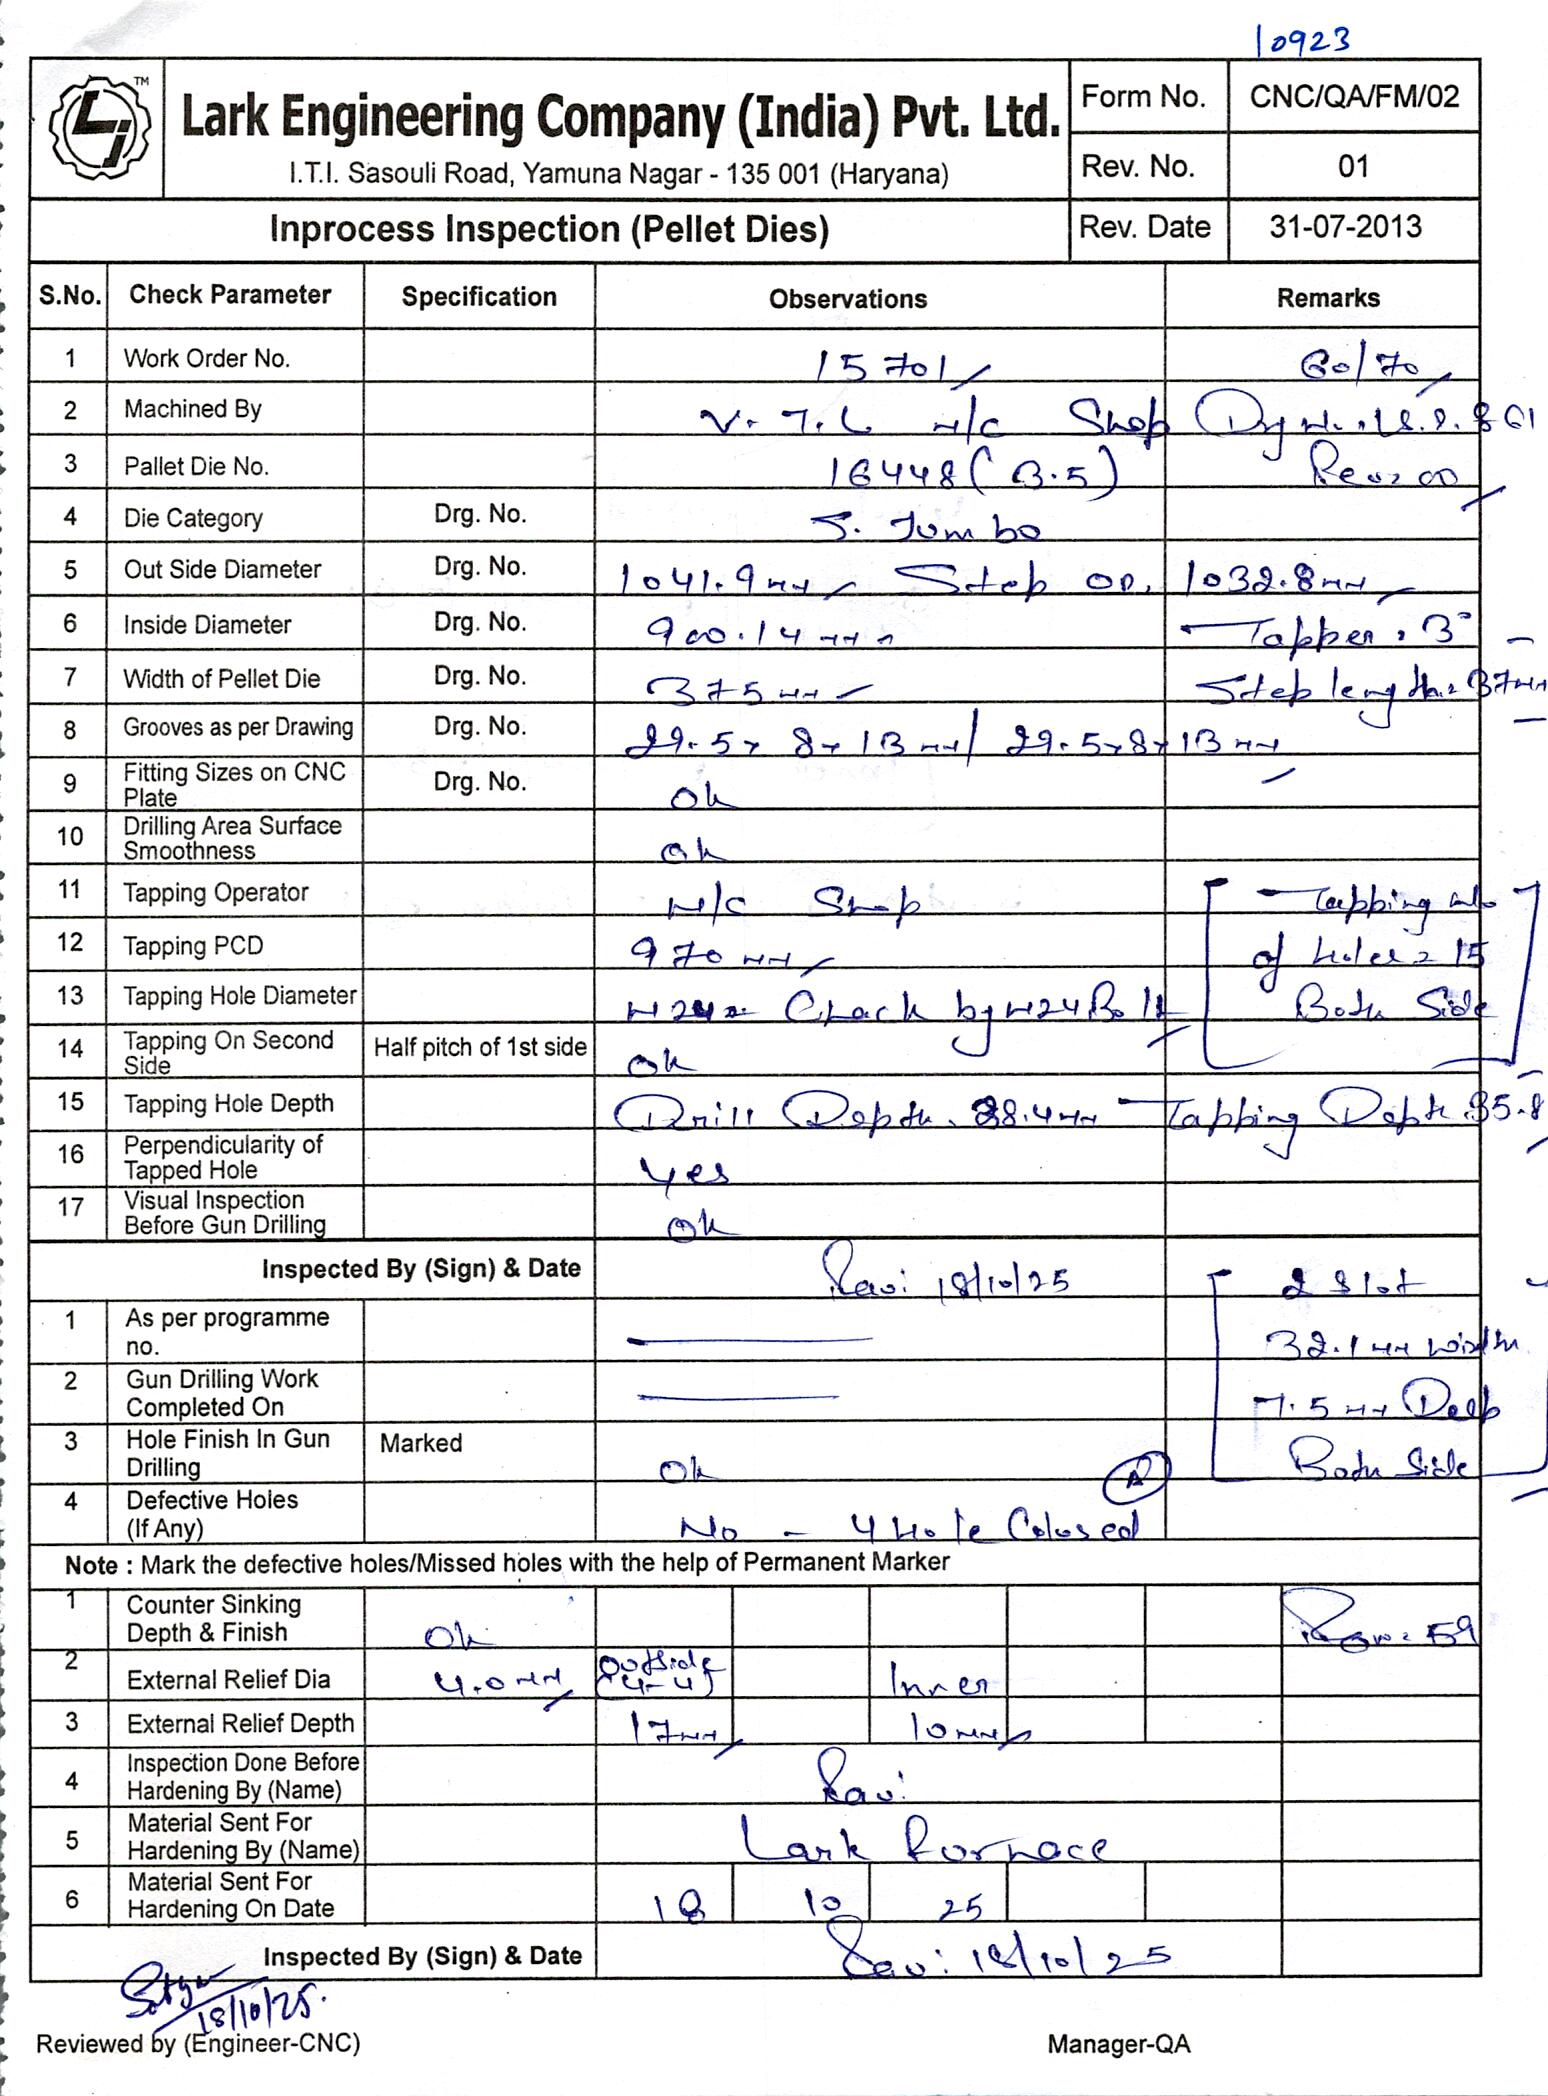 10923
TM
Lark Engineering Company (India) Pvt. Ltd.
I.T.I. Sasouli Road, Yamuna Nagar - 135 001 (Haryana)
Form No. CNC/QA/FM/02
Rev. No. 01
Inprocess Inspection (Pellet Dies) Rev. Date 31-07-2013
S.No. Check Parameter Specification Observations Remarks
1 Work Order No. 15701 60/70
2 Machined By V.T.L M/C Shop
3 Pallet Die No. 16448 (3.5)
4 Die Category Drg. No. S. Jumbo
5 Out Side Diameter Drg. No. 1041.9 mm Step OD. 1032.8 mm
6 Inside Diameter Drg. No. 900.14 mm Tapper = 3°
7 Width of Pellet Die Drg. No. 375 mm Step length = 37 mm
8 Grooves as per Drawing Drg. No. 29.5 x 8 x 13 mm / 29.5 x 8 x 13 mm
9 Fitting Sizes on CNC Plate Drg. No. Ok
10 Drilling Area Surface Smoothness Ok
11 Tapping Operator M/C Shop Tapping
12 Tapping PCD 970 mm of holes = 15
13 Tapping Hole Diameter M24 Check by M24 Bolt Both Side
14 Tapping On Second Side Half pitch of 1st side Ok
15 Tapping Hole Depth Drill Depth. 38.4 mm Tapping Depth 35.8
16 Perpendicularity of Tapped Hole Yes
17 Visual Inspection Before Gun Drilling Ok
Inspected By (Sign) & Date Ravi 18/10/25 2 Slot
1 As per programme no. 32.1 mm width
2 Gun Drilling Work Completed On 7.5 mm Deep
3 Hole Finish In Gun Drilling Marked Ok Both Side
A
4 Defective Holes (If Any) No - 4 Hole Colused
Note : Mark the defective holes/Missed holes with the help of Permanent Marker
1 Counter Sinking Depth & Finish Ok Row = 59
2 External Relief Dia 4.0 mm Outside (4-4) Inner
3 External Relief Depth 17 mm 10 mm
4 Inspection Done Before Hardening By (Name) Ravi
5 Material Sent For Hardening By (Name) Lark Furnace
6 Material Sent For Hardening On Date 18 10 25
Inspected By (Sign) & Date Ravi 18/10/25
18/10/25.
Reviewed by (Engineer-CNC) Manager-QA